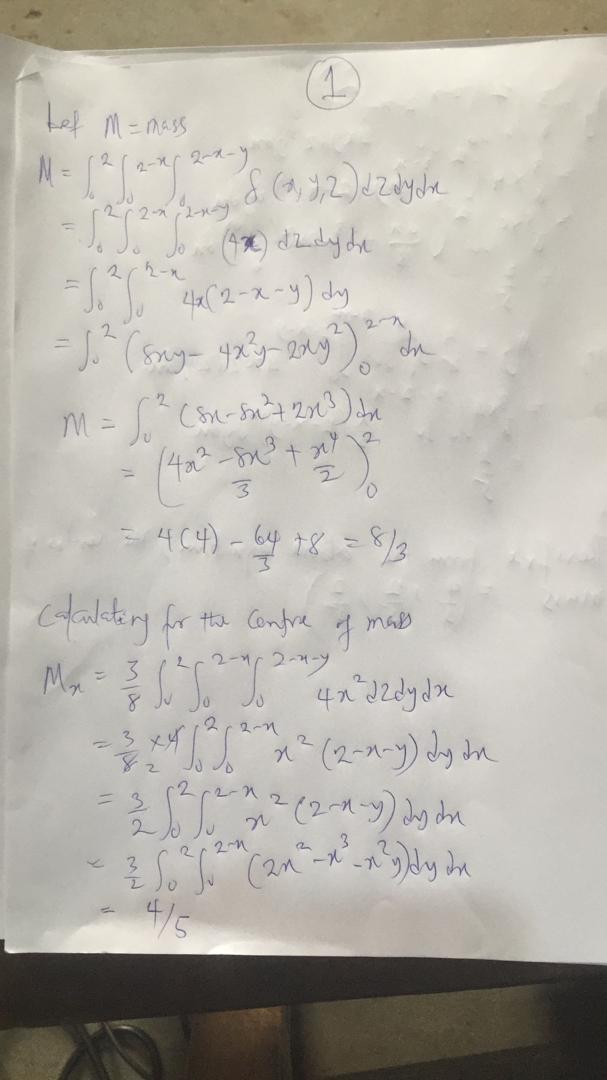 1
Let M = mass
M = ∫₀² ∫₀²⁻ˣ ∫₀²⁻ˣ⁻ʸ δ(x,y,z) dzdydx
= ∫₀² ∫₀²⁻ˣ ∫₀²⁻ˣ⁻ʸ (4x) dzdydx
= ∫₀² ∫₀²⁻ˣ 4x(2-x-y) dy
= ∫₀² (8xy - 4x²y - 2xy²)₀²⁻ˣ dx
M = ∫₀² (8x - 8x² + 2x³) dx
= (4x² - 8x³/3 + x⁴/2)₀²
= 4(4) - 64/3 + 8 = 8/3
Calculating for the centre of mass
Mx = 3/8 ∫₀² ∫₀²⁻ˣ ∫₀²⁻ˣ⁻ʸ 4x² dzdydx
= 3/8₂ × 4 ∫₀² ∫₀²⁻ˣ x² (2-x-y) dy dx
= 3/2 ∫₀² ∫₀²⁻ˣ x² (2-x-y) dy dx
= 3/2 ∫₀² ∫₀²⁻ˣ (2x² - x³ - x²y) dy dx
= 4/5